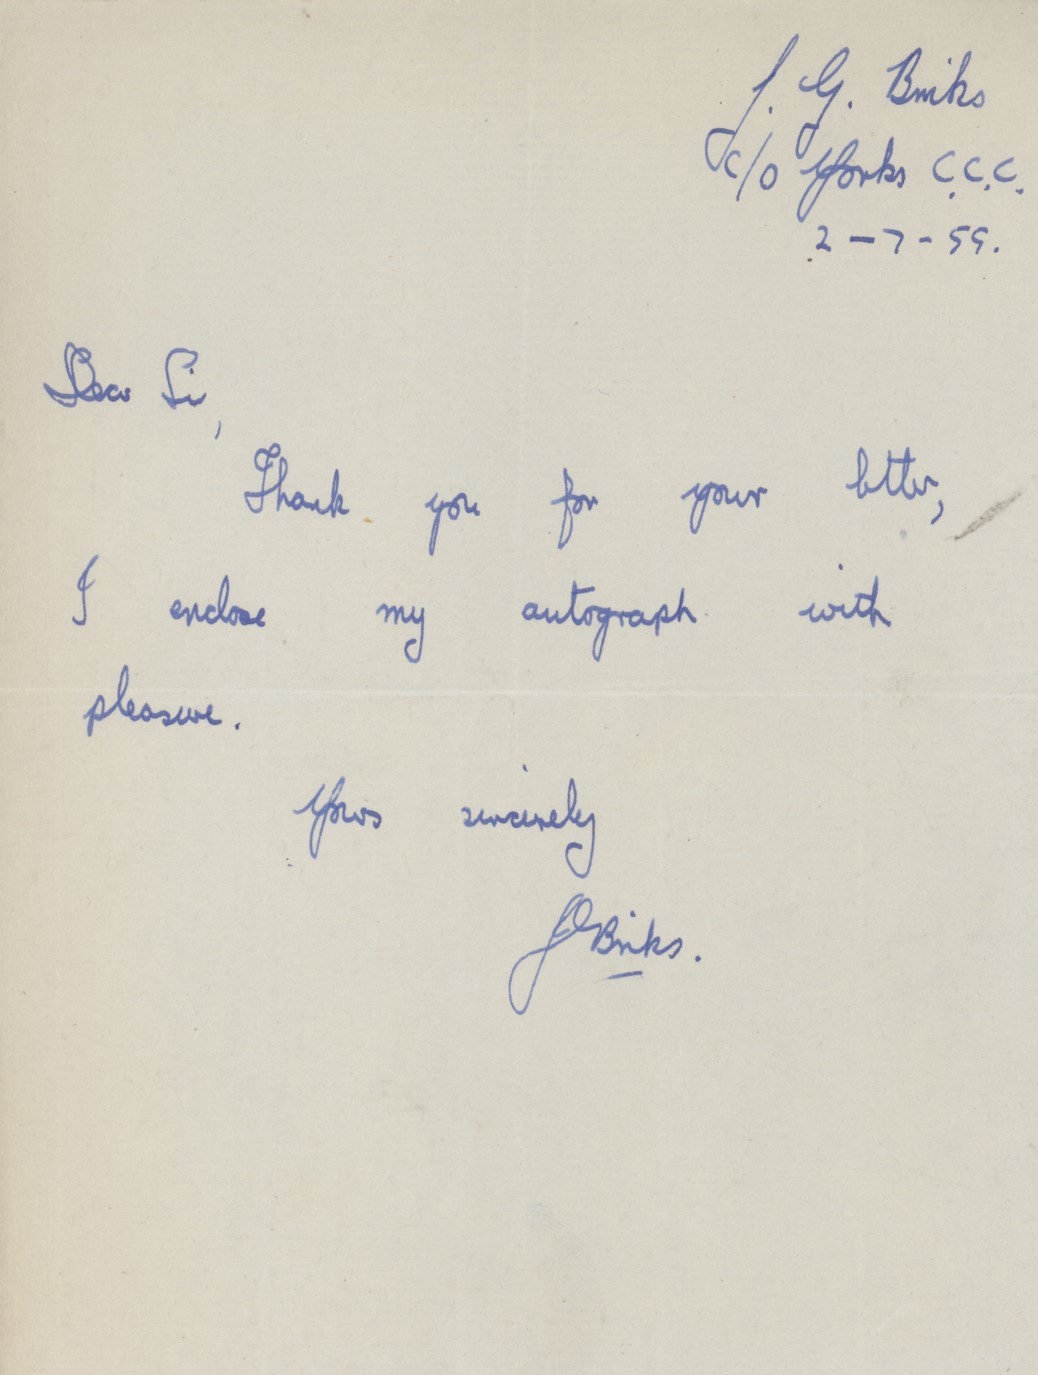 J. G. Binks
c/o Yorks C.C.C.
2-7-55.
Dear Sir,
Thank you for your letter,
I enclose my autograph with
pleasure.
Yours sincerely
JG Binks.